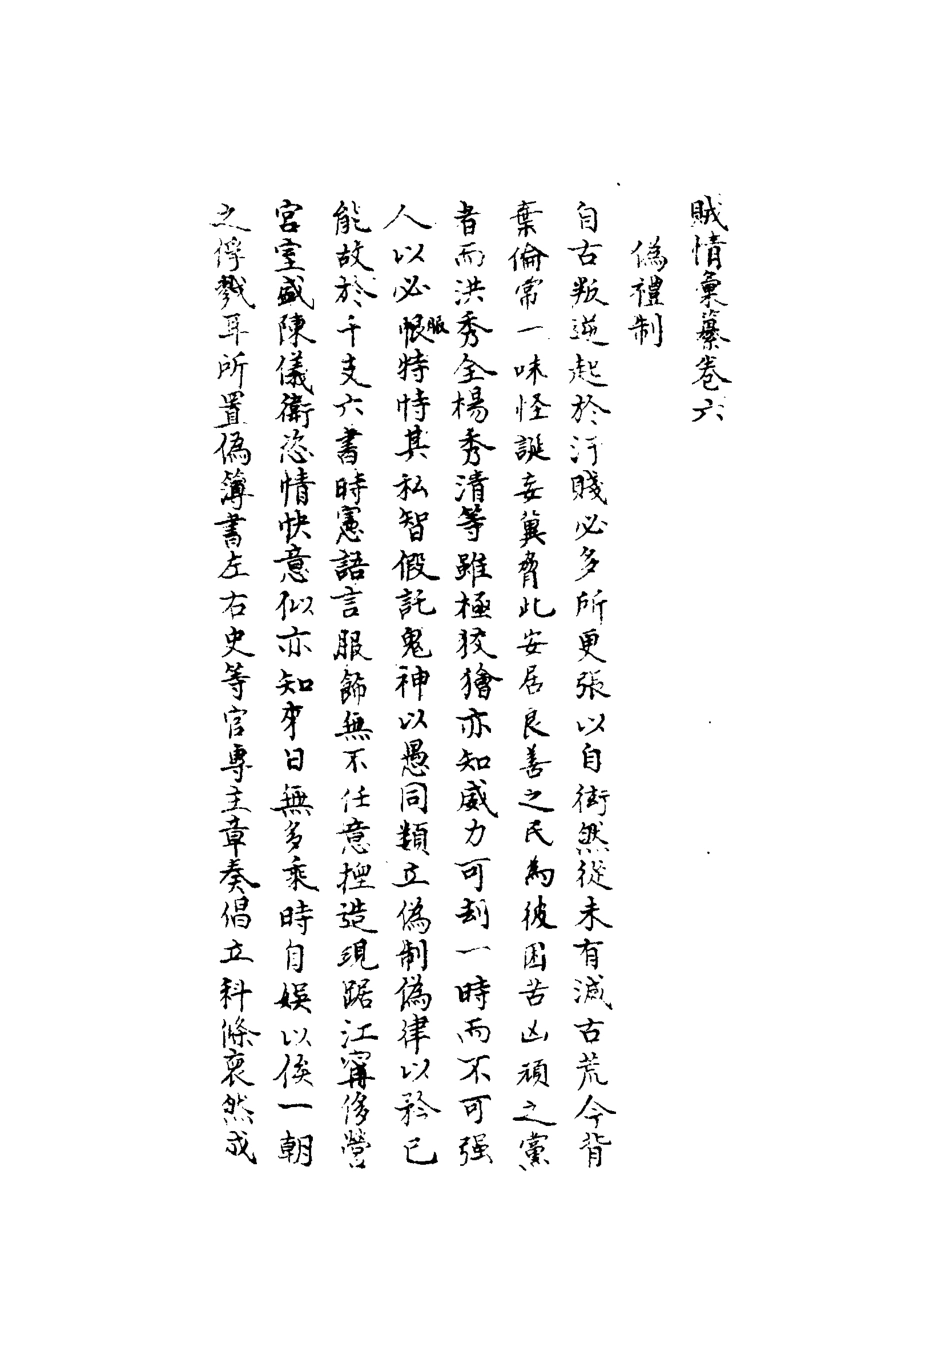 賊情彙纂卷六
偽禮制
自古叛逆起於汙賤必多所更張以自衒然從未有滅古荒今背
棄倫常一味怪誕妄冀脅此安居良善之民為彼困苦凶頑之黨
者而洪秀全楊秀清等雖極狡獪亦知威力可刼一時而不可强
人以必服恨特恃其私智假託鬼神以愚同類立偽制偽律以矜己
能故於干支六書時憲語言服飾無不任意揑造現踞江寗侈營
宮室盛陳儀衛恣情快意似亦知來日無多乘時自娛以俟一朝
之俘戮耳所置偽簿書左右史等官專主章奏倡立科條裒然成